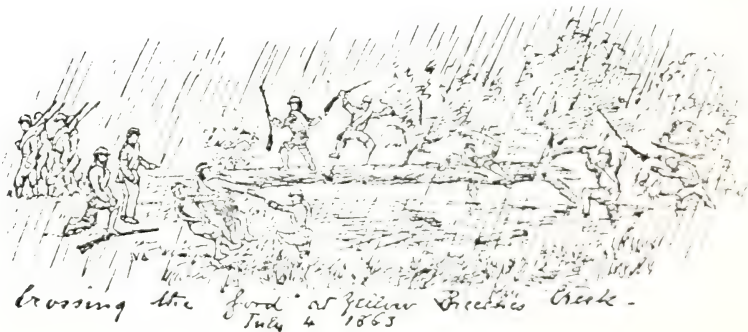 Crossing the ford at Yellow Breeches Creek -
July 4 1863